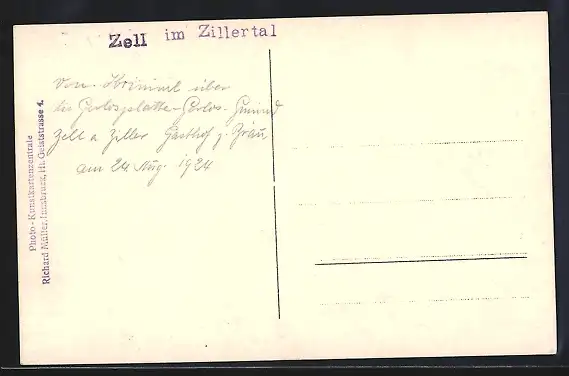 Zell im Zillertal
Von Krimml über
die Gerlosplatte - Gerlos - Gmünd
Zell a Ziller Gasthof z. Bräu
am 24. Aug. 1924
Photo-Kunstkartenzentrale
Richard Müller, Innsbruck, Hl. Geiststrasse 4.